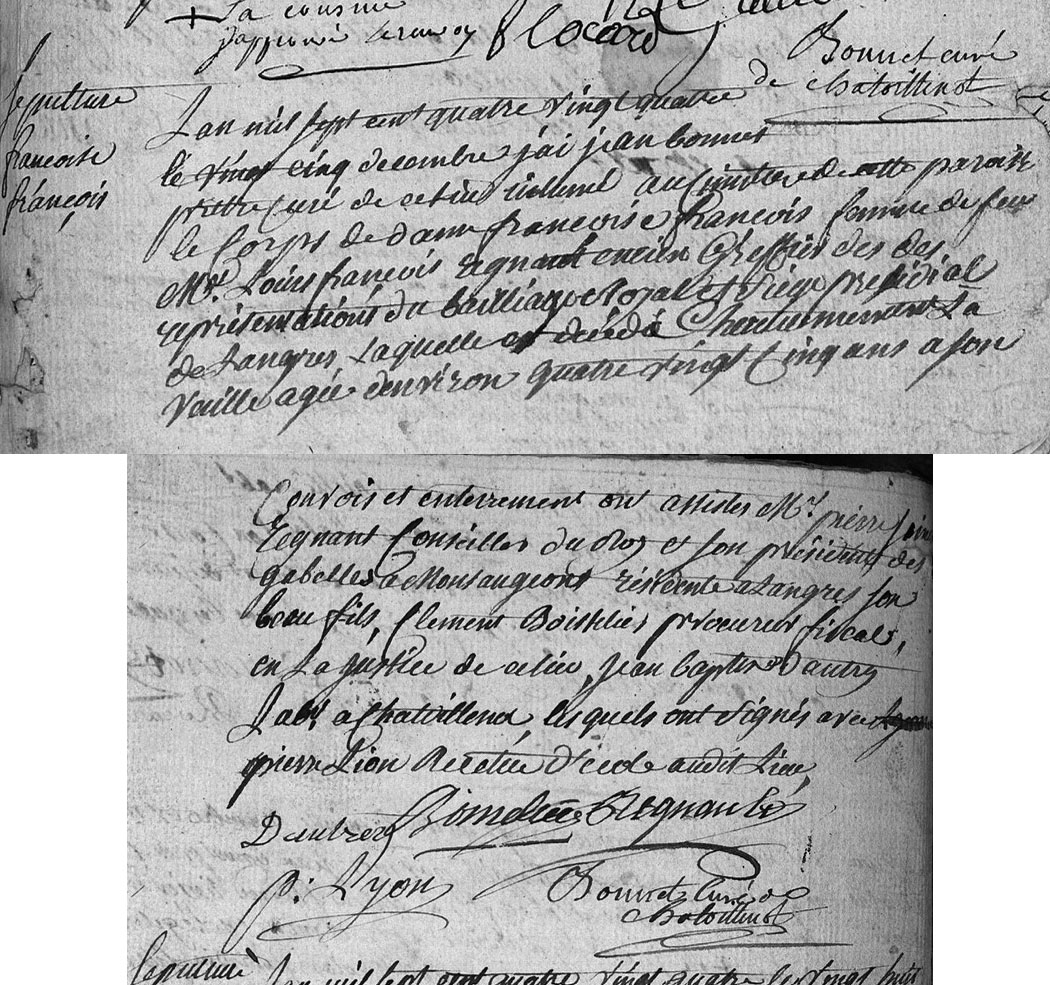 + La cousine
j'approuve
Locard
Bonnet curé
de Chatoillenot
Sepulture
francoise
françois
Lan mil sept cent quatre vingt quatre
le vingt cinq decembre j'ai jean bonnet
prêtre curé de ce lieu inhumé au cimitere de cette paroisse
le Corps de dame francoise francois femme de feu
Mr. Louis françois Regnault encien Greffier des des
représentations du bailliage Royal et siege presidial
de Langres, Laquelle est décédé Chretiennement La
Veille agée d'environ quatre vingt Cinq ans a son
Convois et enterrement ont assistes Mr. pierre
Regnault Conseiller du Roy et son président des
gabelles a Montsaugeons résidente a Langres son
beau fils, Clement Boisselier procureur fiscale,
en La justice de ce lieu, jean baptiste Daubrey
Labr. a Chatoillenot lesquels ont signés avec
pierre Lion Recteur d'ecole audit Lieu,
Daubrey Boisselier Regnault
p: Lyon Bonnet Curé de
Chatoillenot
Sepulture Lan mil sept cent quatre vingt quatre le vingt huit